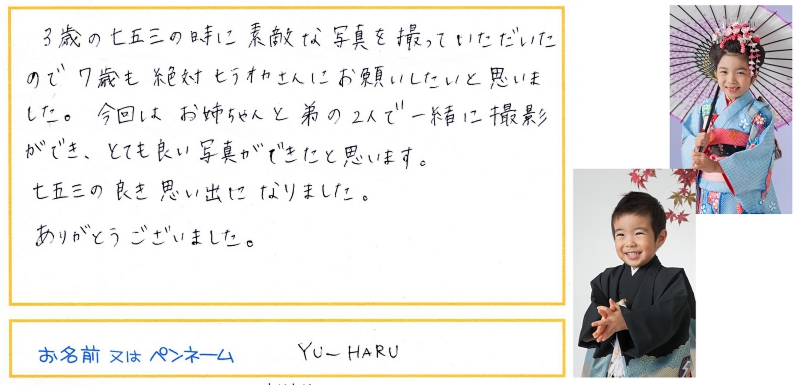 3歳の七五三の時に素敵な写真を撮っていただいた
ので7歳も絶対ヒラオカさんにお願いしたいと思いま
した。今回はお姉ちゃんと弟の2人で一緒に撮影
ができ、とても良い写真ができたと思います。
七五三の良き思い出になりました。
ありがとうございました。
お名前 又は ペンネーム YU-HARU